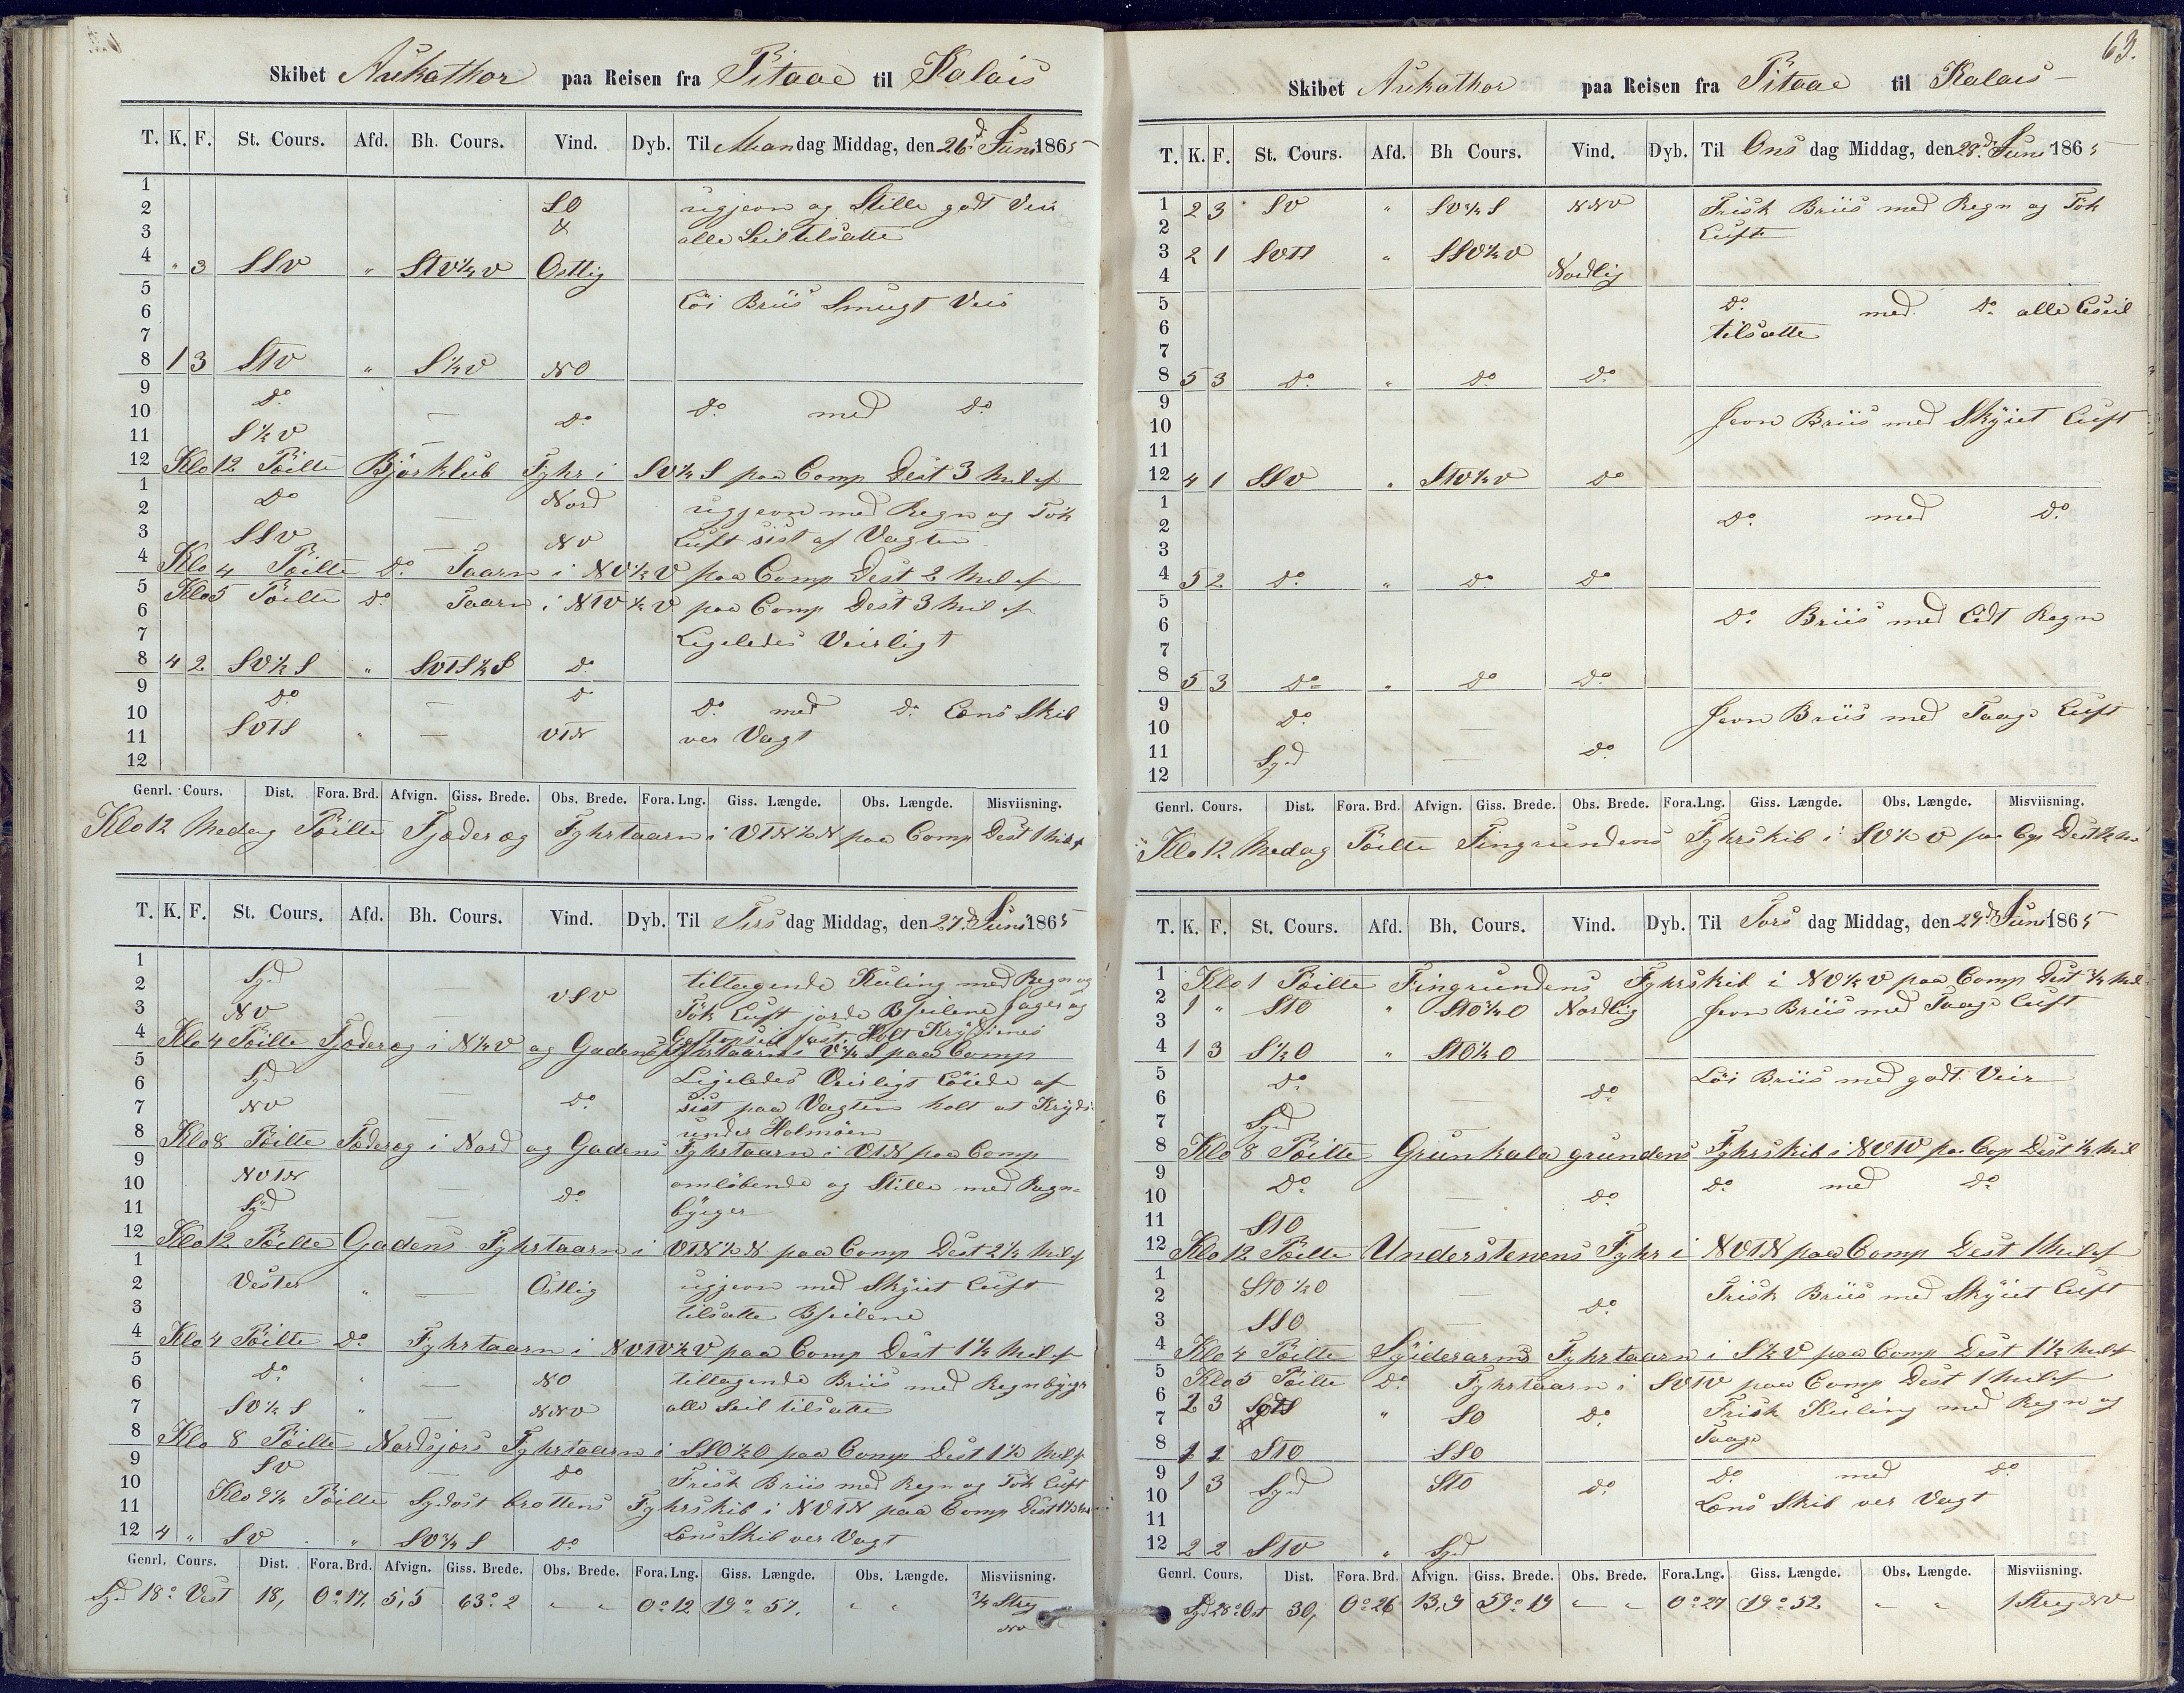 Skibet Aukathor paa Reisen fra Pitaae til Kalais
T. K. F. St. Cours. Afd. Bh. Cours. Vind. Dyb. Til Mandag Middag, den 26d Juni 1865
1
2 SO ugjevn og Stille godt Veir
3 & alle Seil tilsatte
4 " 3 SSV " StV½V Ostlig
5 Löi Briis Smugt Veir
6
7
8 1 3 StV " S½V NO
9 Do
10 — Do Do med Do
11 S½V —
12 Klo 12 Peilte Bjorklub Fyhr i SV½S paa Comp Dest 3 Mil af
1 Do Nord
2 — ugjevn med Regn og Tök
3 SSV — NV Luft sist af Vagten
4 Klo 4 Peilte Do Taarn i NV½V paa Comp Dest 2 Mil af
5 Klo 5 Peilte Do Taarn i NTV½V paa Comp Dest 3 Mil af
6
7 Ligeledes Veirligt
8 4 2 SV½S " SVTS½S Do
9 Do Do
10 — Do med Do Læns Skib
11 SVTS — VTN ver Vagt
12
Genrl. Cours. Dist. Fora. Brd. Afvign. Giss. Brede. Obs. Brede. Fora. Lng. Giss. Længde. Obs. Længde. Misviisning.
Klo 12 Medag Peilte Fjæderæg Fyhrtaarn i VTN½N paa Comp Dest 1 Mil af
T. K. F. St. Cours. Afd. Bh. Cours. Vind. Dyb. Til Tirsdag Middag, den 27d Juni 1865
1
2 Syd — VSV tiltagende Kuling med Regn og
3 NV — Tök Luft jorde Bseilene
4 Klo 4 Peilte Fjæderæg i N½V og Gadens Fyhrtaarn i V¾S paa Comp
5
6 Syd — Do Ligeledes Veirligt Löiede af
7 NV sist paa Vagten holt at Kryds
8 under Holmöen
Klo 8 Peilte Fjæderæg i Nord og Gadens Fyhrtaarn i VTN paa Comp
9
10 NVTN — Do omlöbende og Stille med Regn-
11 Syd — byger
12 Klo 12 Peilte Gadens Fyhrtaarn i VTN½N paa Comp Dest 2½ Mil af
1
2 Vester " — Ostlig ugjevn med Skyiet Luft
3 tilsatte Bseilene
4 Klo 4 Peilte Do Fyhrtaarn i NVTV½V paa Comp Dest 1½ Mil af
5
6 Do " — NO tiltagende Briis med Regnbyger
7 SV½S " — NNV alle Seil tilsatte
8 Klo 8 Peilte Nordsjors Fyhrtaarn i SSO½O paa Comp Dest 1½ Mil af
9 SV — Do
10 Frisk Briis med Regn og Tök Luft
11 Klo 9½ Peilte Sydost brottens Fyhrskib i NVTN paa Comp
12 4 " SV " SV¾S Do Læns Skib ver Vagt
Genrl. Cours. Dist. Fora. Brd. Afvign. Giss. Brede. Obs. Brede. Fora. Lng. Giss. Længde. Obs. Længde. Misviisning.
Syd 18° Vest 18, 0°17, 5,5 63°2 " " 0°12 19°57. " " ¾ Streg
NV
63.
Skibet Aukathor paa Reisen fra Pitaae til Kalais
T. K. F. St. Cours. Afd. Bh Cours. Vind. Dyb. Til Onsdag Middag, den 28d Juni 1865
1 2 3 SV " SV¾S NNV Frisk Briis med Regn og Tök
2 Luft
3 2 1 SVTS " SSV½V
4 Nordlig
5 Do med Do alle Leseil
6 tilsatte
7
8 5 3 Do " Do Do
9
10 Jevn Briis med Skyiet Luft
11
12 4 1 SSV " StV½V Do
1
2 Do med Do
3
4 5 2 Do " Do Do
5
6 Do Briis med Lidt Regn
7
8 5 3 Do " Do Do
9
10 Do — Jevn Briis med Taage Luft
11 Syd — Do
12
Genrl. Cours. Dist. Fora. Brd. Afvign. Giss. Brede. Obs. Brede. Fora.Lng. Giss. Længde. Obs. Længde. Misviisning.
Klo 12 Medag Peilte Fingrundens Fyhrskib i SV½V paa Cop
T. K. F. St. Cours. Afd. Bh. Cours. Vind. Dyb. Til Torsdag Middag, den 29d Juni 1865
1 Klo 1 Peilte Fingrundens Fyhrskib i NV½V paa Comp Dest ¾ Mil
2 1 " StO " StO¾O Nordlig Jevn Briis med Taage Luft
3
4 1 3 S½O " StO½O
5 Do Löi Briis med godt Veir
6 — Do
7 Syd
8 Klo 8 Peilte Grunkala grundens Fyhrskib i NVTV paa Cop Dest ½ Mil
9 Do Do med Do
10 — Do
11 StO —
12 Klo 12 Peilte Understenens Fyhr i NVTN paa Comp Dest 1 Mil af
1 StO½O
2 — Do Frisk Briis med Skyiet Luft
3 SSO —
4 Klo 4 Peilte Syiderarms Fyhrtaarn i S½V paa Comp Dest 1½ Mil af
5 Klo 5 Peilte Do Fyhrtaarn i SVTV paa Comp Dest 1 Mil af
6 2 3 " SO Do Frisk Kuling med Regn og
7 Taage
8 1 1 StO SSO
9 1 3 Syd StO Do Do med Do
10 Læns Skib ver Vagt
11
12 2 2 StV " Syd
Genrl. Cours. Dist. Fora. Brd. Afvign. Giss. Brede. Obs. Brede. Fora.Lng. Giss. Længde. Obs. Længde. Misviisning.
Syd 28° Ost 30, 0°26 13,9 59°19 " " 0°27 19°52 " " 1 Streg NV